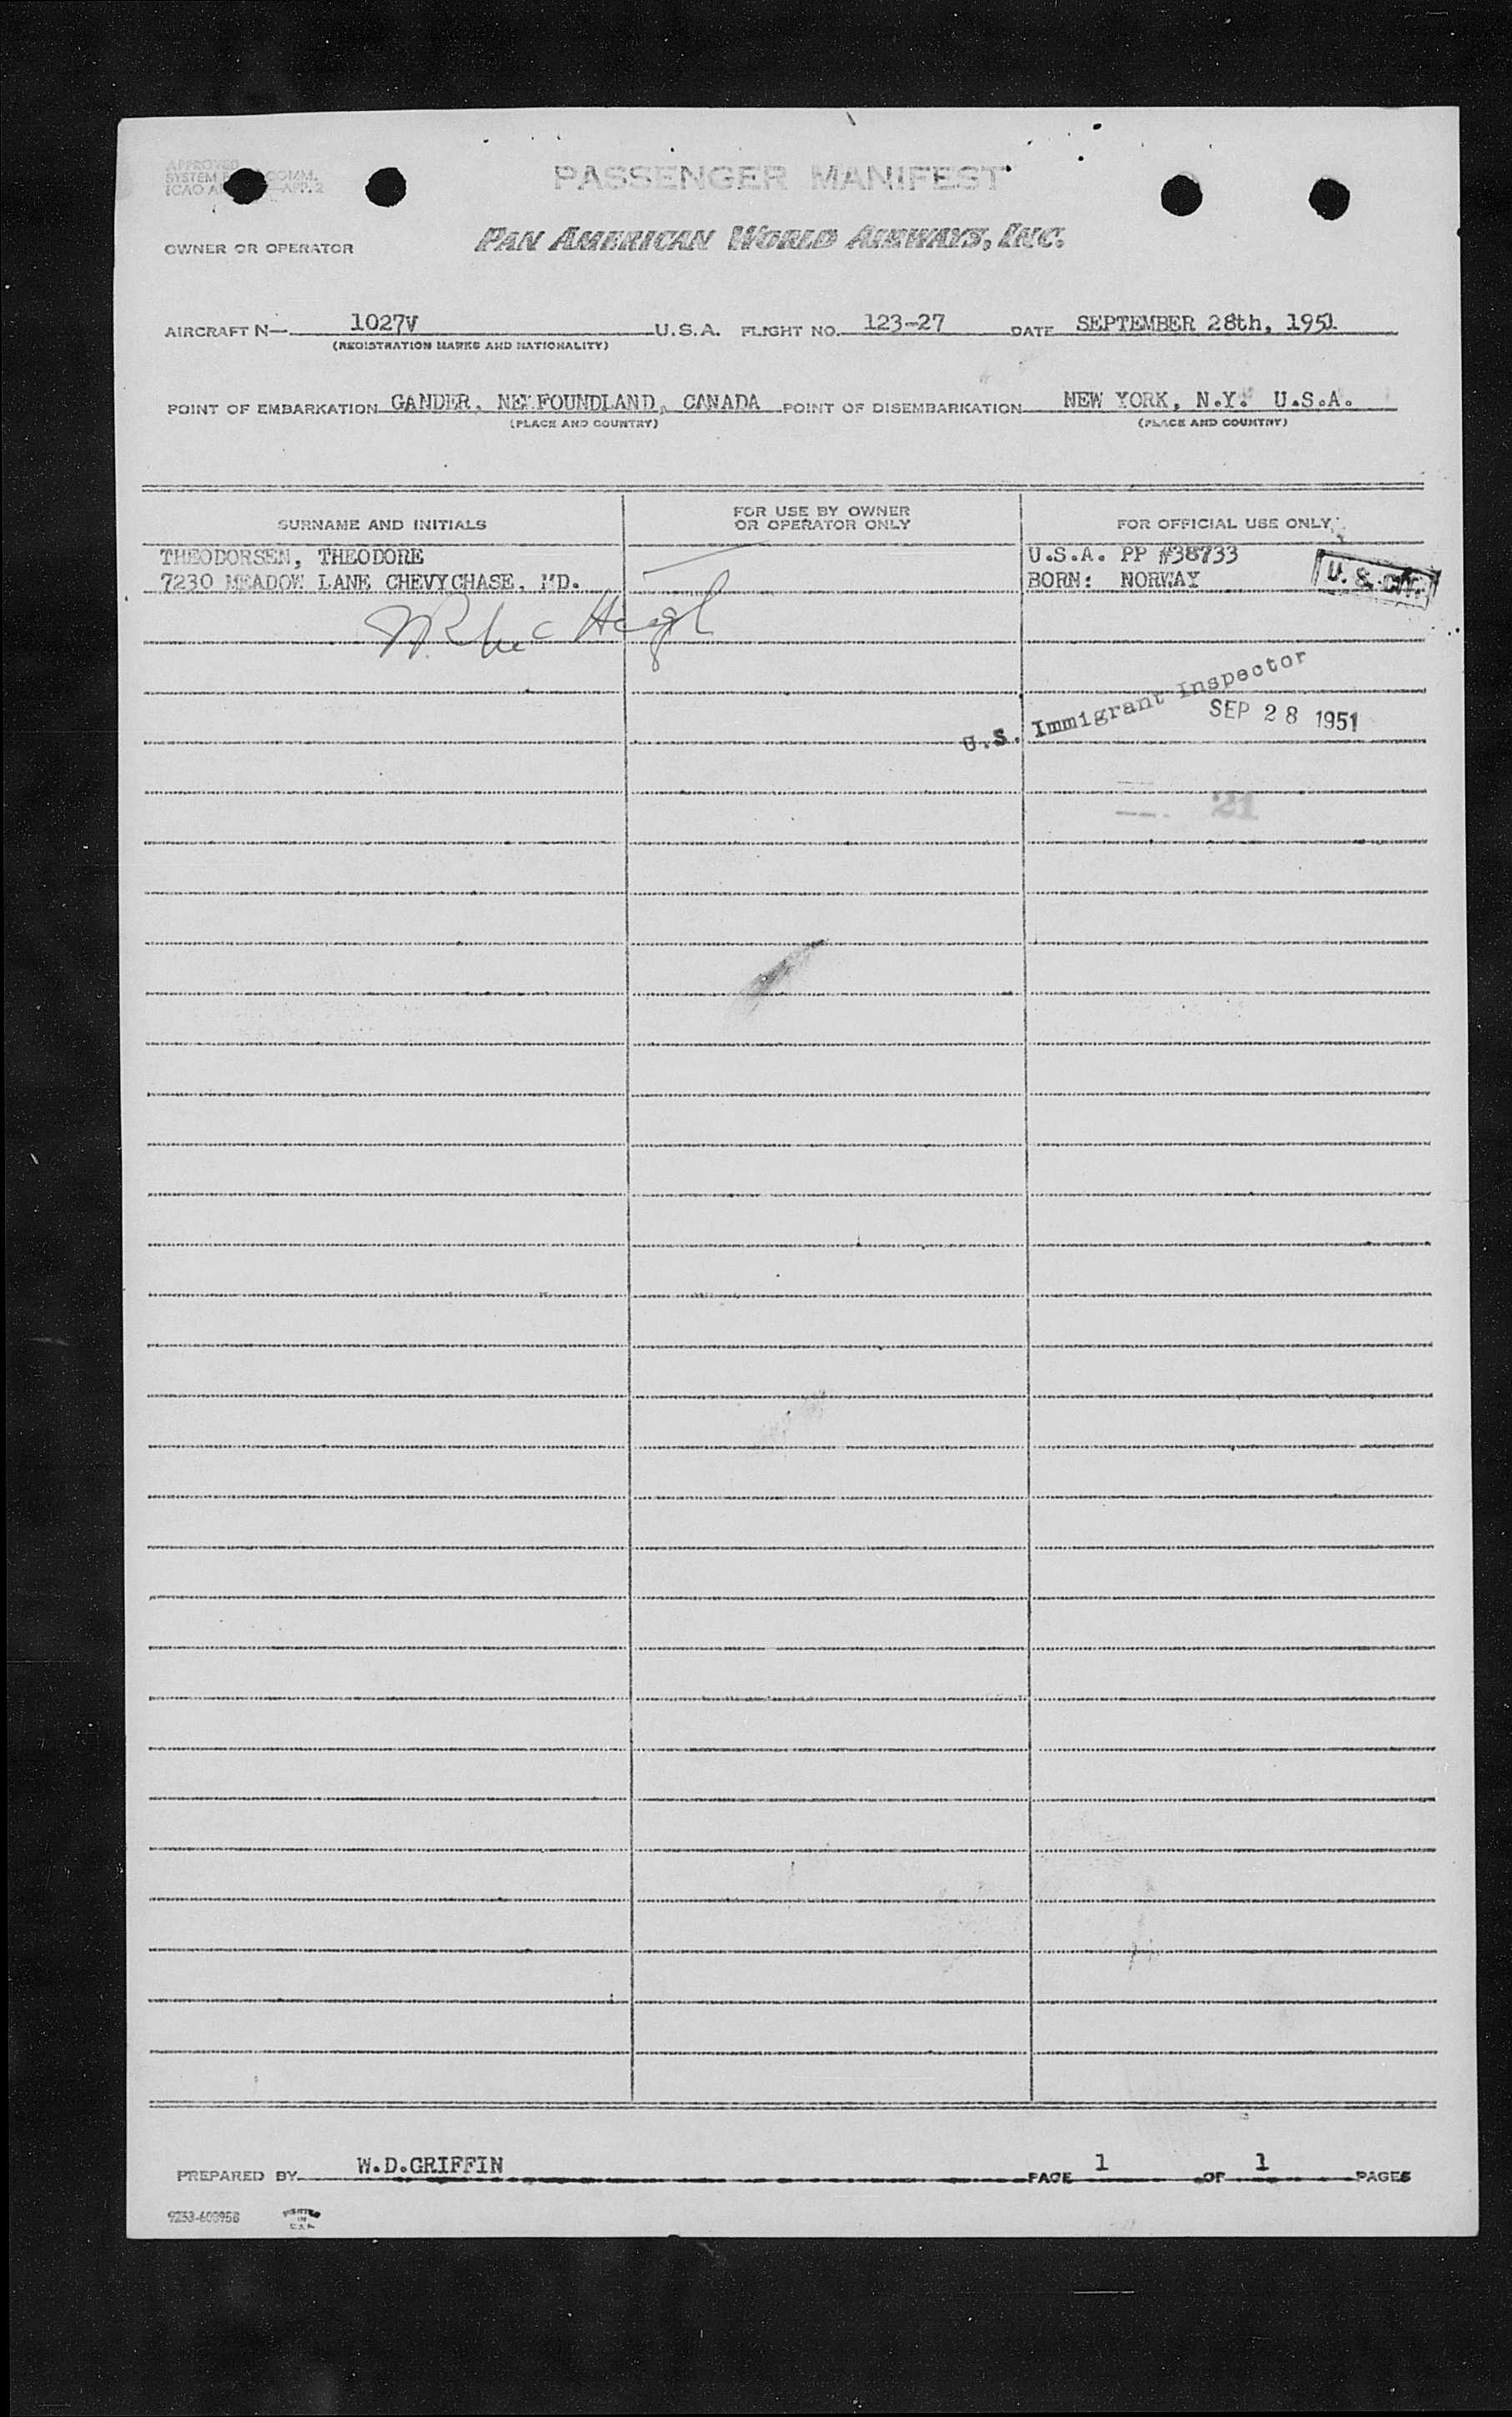 APPROVED
SYSTEM COMM.
ICAO APP. 2
PASSENGER MANIFEST
OWNER OR OPERATOR PAN AMERICAN WORLD AIRWAYS, INC.
AIRCRAFT N— 1027V U.S.A. FLIGHT NO. 123-27 DATE SEPTEMBER 28th, 1951
(REGISTRATION MARKS AND NATIONALITY)
POINT OF EMBARKATION GANDER, NEWFOUNDLAND, CANADA POINT OF DISEMBARKATION NEW YORK, N.Y. U.S.A.
(PLACE AND COUNTRY) (PLACE AND COUNTRY)
SURNAME AND INITIALS FOR USE BY OWNER OR OPERATOR ONLY FOR OFFICIAL USE ONLY
THEODORSEN, THEODORE U.S.A. PP #38733
7230 MEADOW LANE CHEVYCHASE, MD. BORN: NORWAY U. S. CIT.
U.S. Immigrant Inspector
SEP 28 1951
21
PREPARED BY W.D.GRIFFIN PAGE 1 OF 1 PAGES
PRINTED
IN
U.S.A.